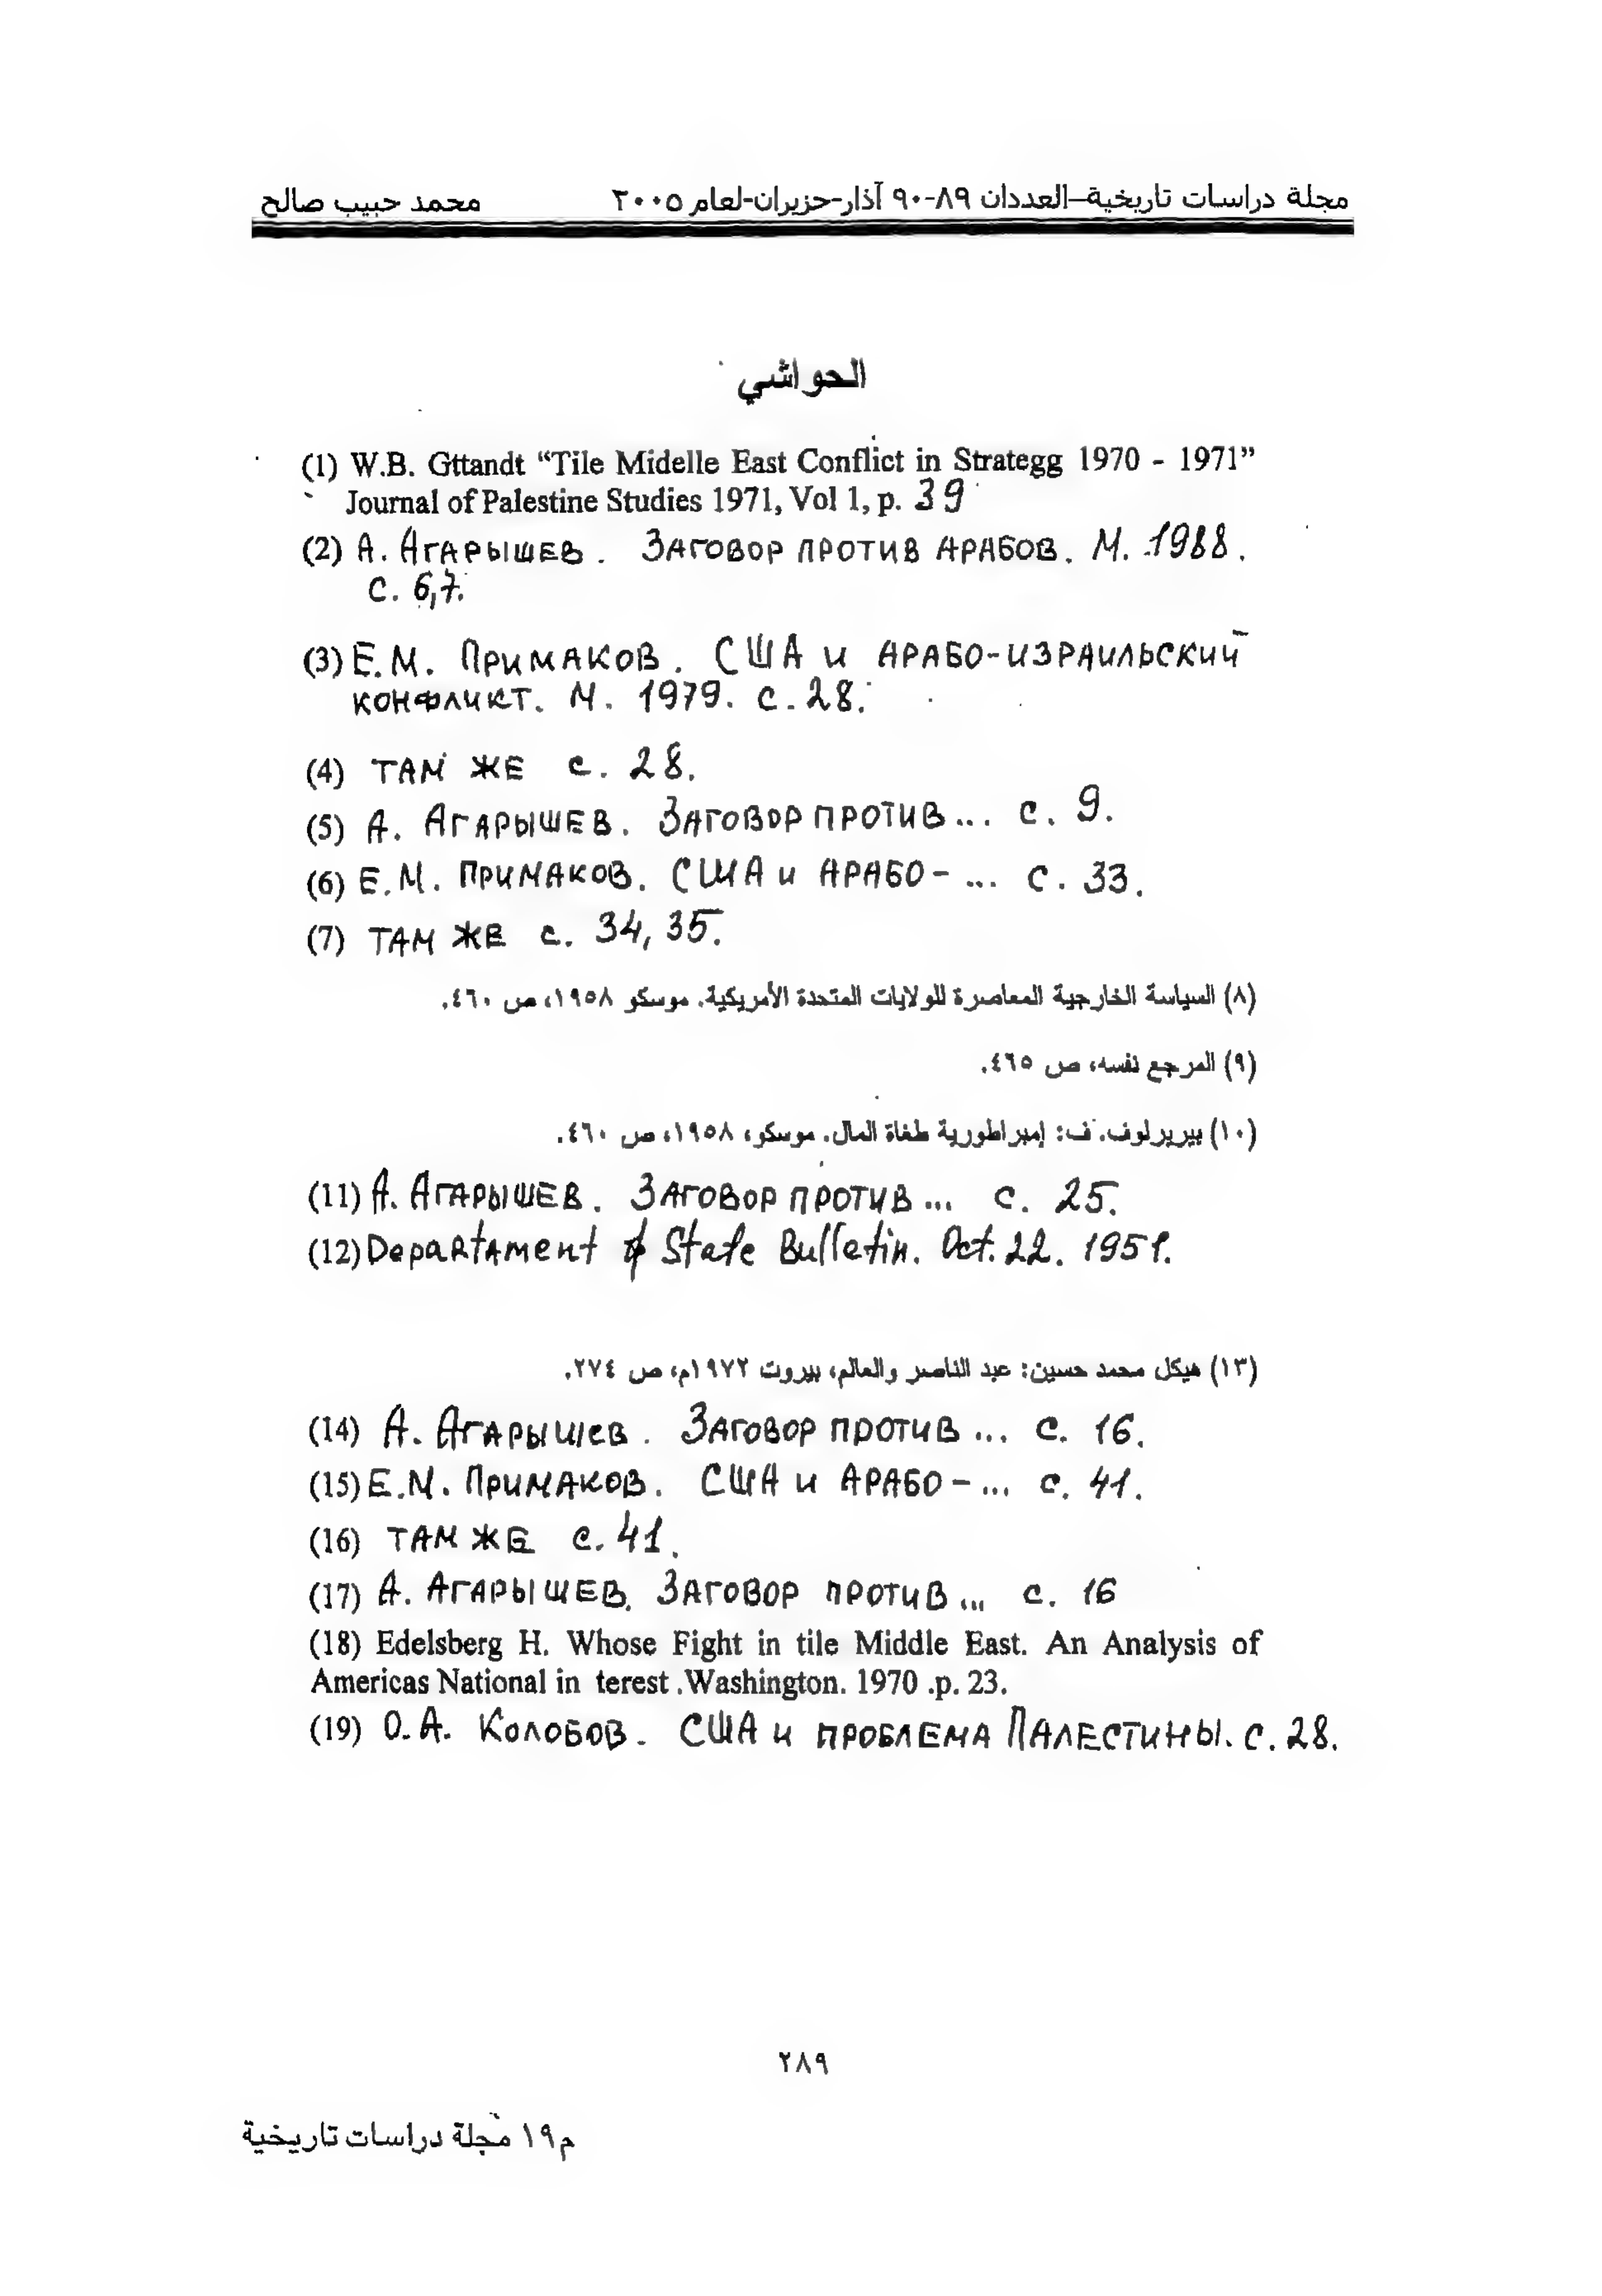 مجلة دراسات تاريخية–العددان ٨٩-٩٠ آذار-حزيران-لعام ٢٠٠٥ محمد حبيب صالح
الحواشي
(1) W.B. Gttandt “Tile Midelle East Conflict in Strategg 1970 - 1971”
Journal of Palestine Studies 1971, Vol 1, p. 39
(2) А. Агарышев. Заговор против арабов. М. 1988.
с. 6,7.
(3) Е.М. Примаков. США и арабо-израильский
конфликт. М. 1979. с. 28.
(4) там же с. 28.
(5) А. Агарышев. Заговор против... с. 9.
(6) Е.М. Примаков. США и арабо-... с. 33.
(7) там же с. 34, 35.
(٨) السياسة الخارجية المعاصرة للولايات المتحدة الأمريكية. موسكو ١٩٥٨، ص ٤٦٠.
(٩) المرجع نفسه، ص ٤٦٥.
(١٠) بيريرلوف. ف: إمبراطورية طغاة المال. موسكو، ١٩٥٨، ص ٤٦٠.
(11) А. Агарышев. Заговор против... с. 25.
(12) Departament of State Bulletin. Oct. 22. 1951.
(١٣) هيكل محمد حسين: عبد الناصر والعالم، بيروت ١٩٧٢م، ص ٢٧٤.
(14) А. Агарышев. Заговор против... с. 16.
(15) Е.М. Примаков. США и арабо-... с. 41.
(16) там же с. 41.
(17) А. Агарышев. Заговор против... с. 16
(18) Edelsberg H. Whose Fight in tile Middle East. An Analysis of
Americas National in terest .Washington. 1970 .p. 23.
(19) О.А. Колобов. США и проблема Палестины. с. 28.
٢٨٩
م١٩ مجلة دراسات تاريخية